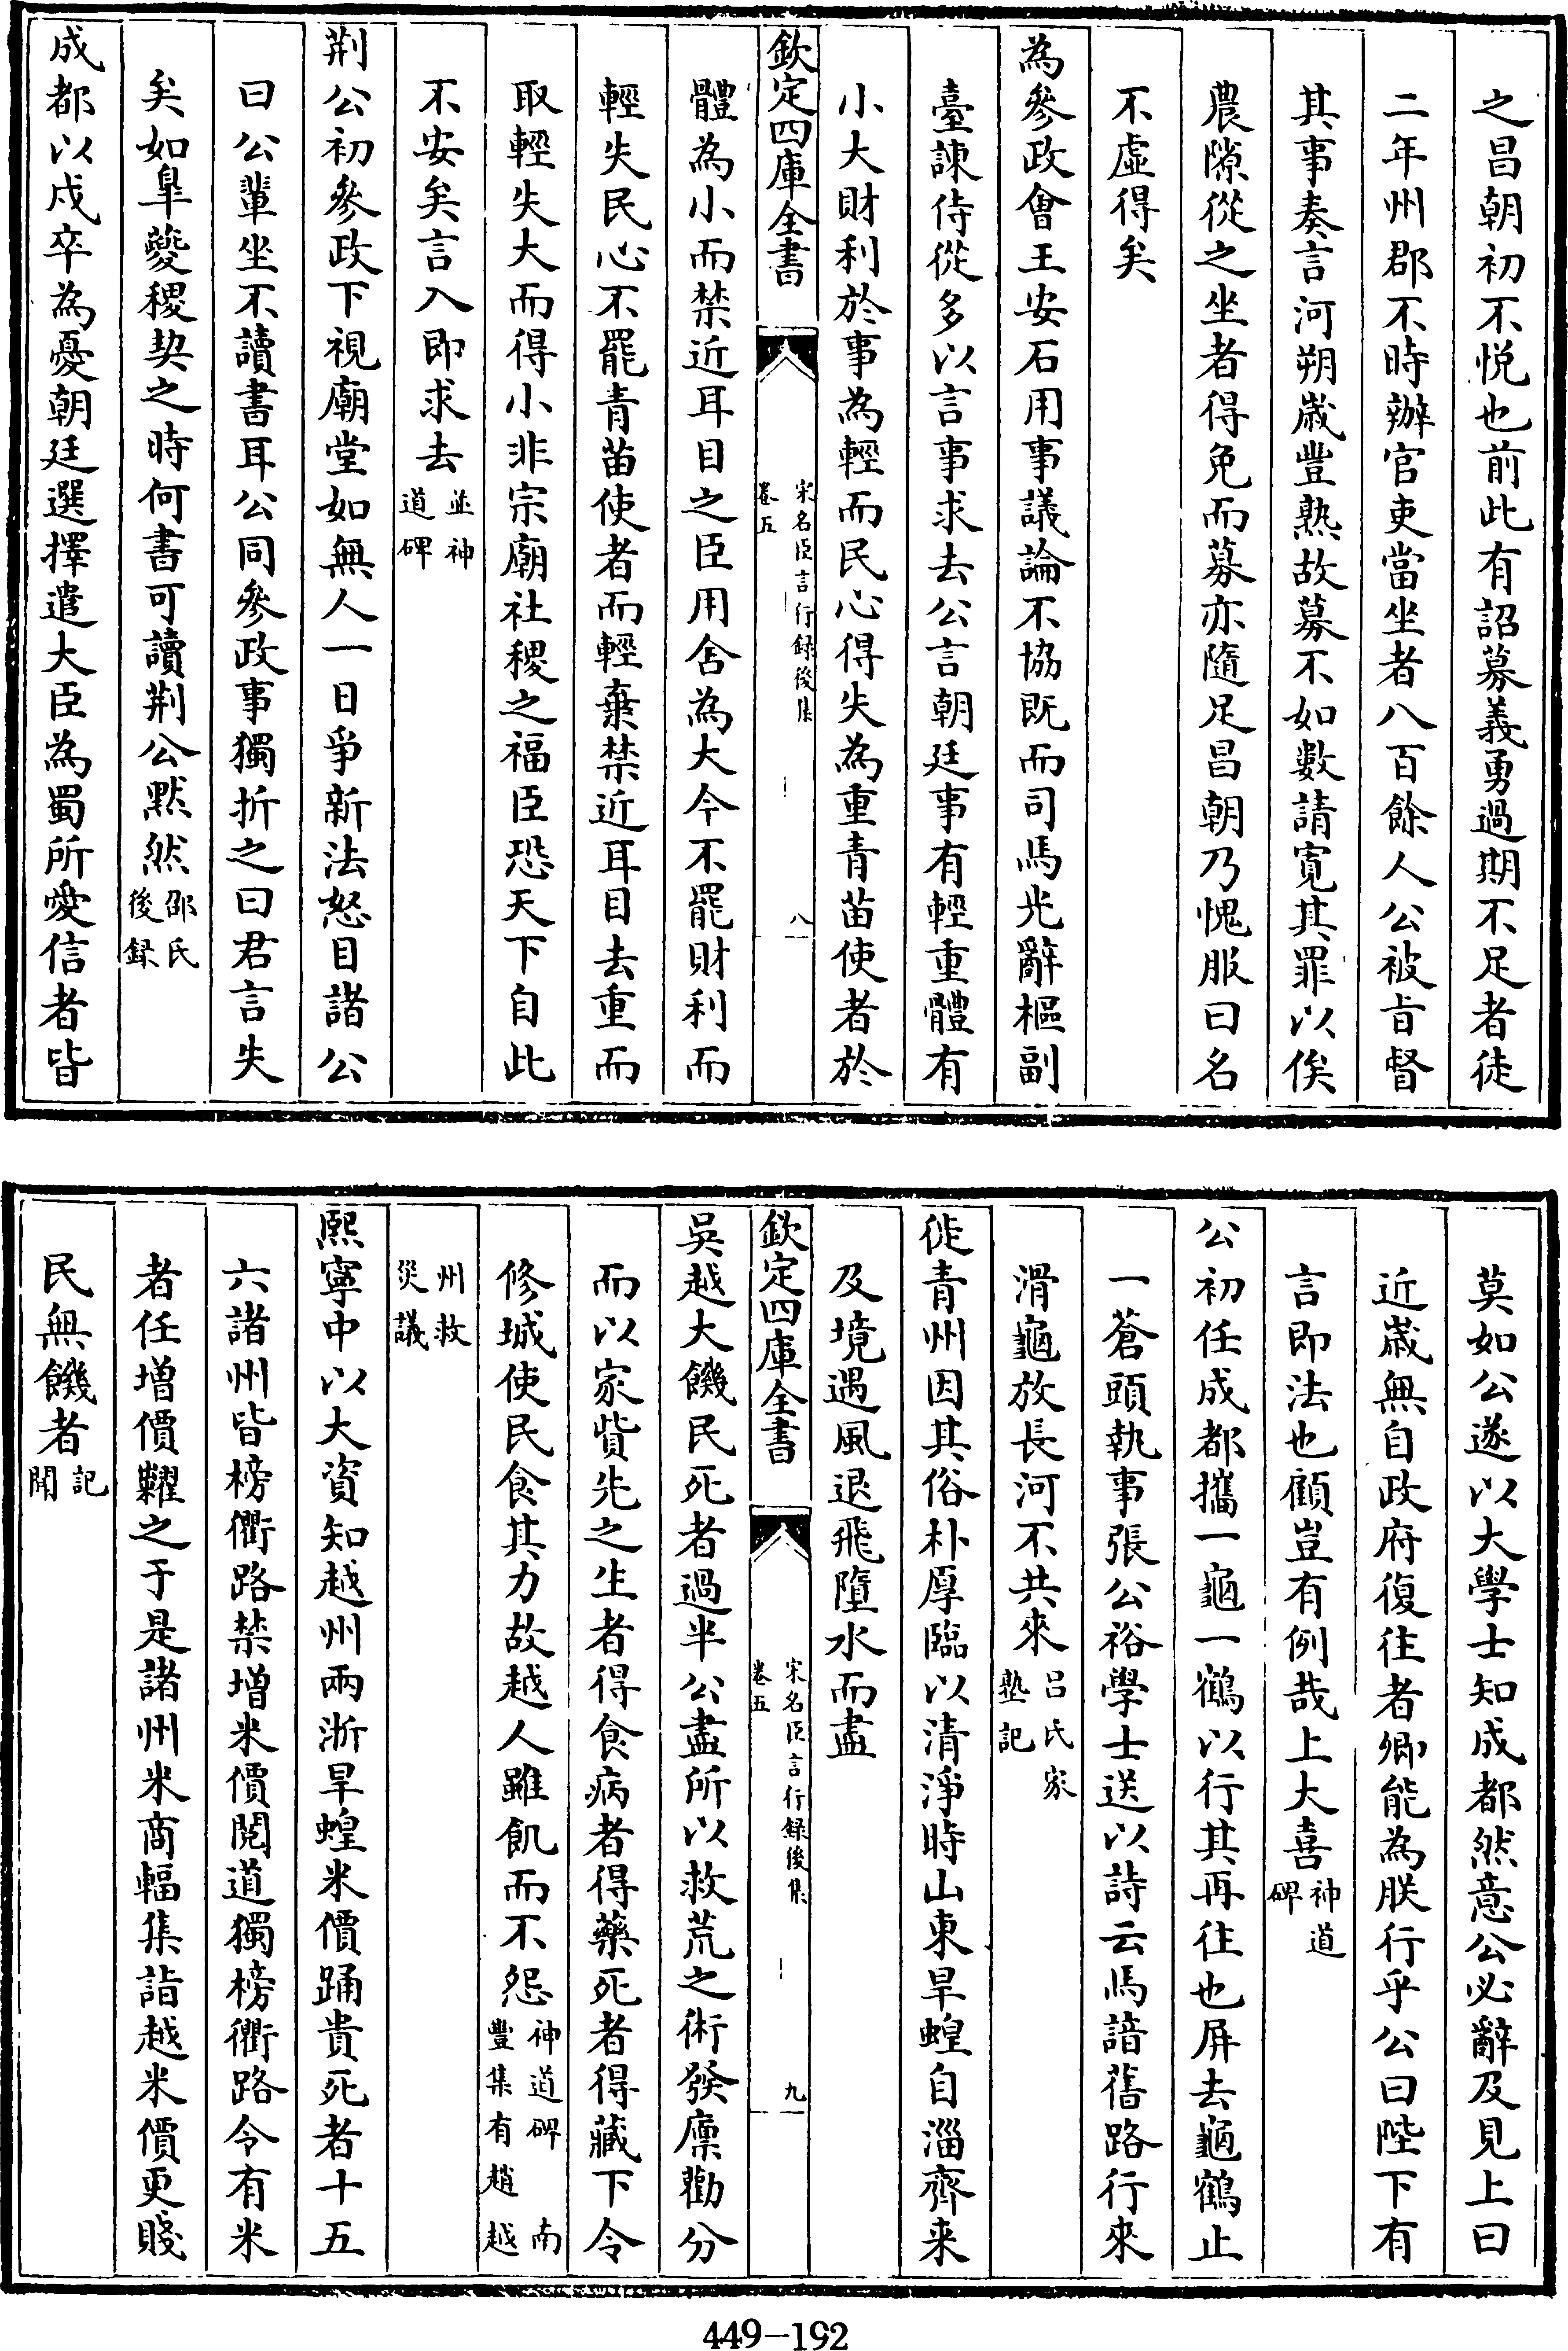 之昌朝初不悦也前此有詔募義勇過期不足者徒
二年州郡不時辦官吏當坐者八百餘人公被旨督
其事奏言河朔嵗豐熟故募不如數請寛其罪以俟
農隙從之坐者得免而募亦隨足昌朝乃愧服曰名
不虛得矣
為參政會王安石用事議論不協既而司馬光辭樞副
臺諫侍從多以言事求去公言朝廷事有輕重體有
小大財利於事為輕而民心得失為重青苗使者於
欽定四庫全書
宋名臣言行録後集
卷五
八
體為小而禁近耳目之臣用舍為大今不罷財利而
輕失民心不罷青苗使者而輕棄禁近耳目去重而
取輕失大而得小非宗廟社稷之福臣恐天下自此
不安矣言入即求去並神道碑
荆公初參政下視廟堂如無人一日爭新法怒目諸公
曰公輩坐不讀書耳公同參政事獨折之曰君言失
矣如臯夔稷契之時何書可讀荆公黙然邵氏後録
成都以戍卒為憂朝廷選擇遣大臣為蜀所愛信者皆
莫如公遂以大學士知成都然意公必辭及見上曰
近嵗無自政府復往者卿能為朕行乎公曰陛下有
言即法也顧豈有例哉上大喜神道碑
公初任成都攜一龜一鶴以行其再往也屏去龜鶴止
一蒼頭執事張公裕學士送以詩云馬諳舊路行來
滑龜放長河不共來呂氏家塾記
徙青州因其俗朴厚臨以清淨時山東旱蝗自淄齊来
及境遇風退飛墮水而盡
欽定四庫全書
宋名臣言行録後集
卷五
九
吳越大饑民死者過半公盡所以救荒之術發廪勸分
而以家貲先之生者得食病者得藥死者得藏下令
修城使民食其力故越人雖飢而不怨神道碑 南豐集有趙越
州救災議
熙寧中以大資知越州兩浙旱蝗米價踊貴死者十五
六諸州皆榜衢路禁增米價閱道獨榜衢路令有米
者任增價糶之于是諸州米商輻集詣越米價更賤
民無饑者記聞
449-192